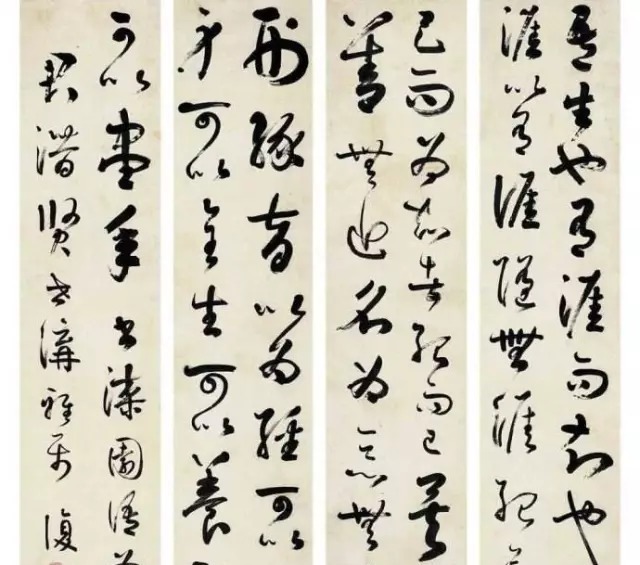 吾生也有涯而知也
涯以有涯隨無涯殆
已而為知者殆而已矣
善無近名為惡無
刑緣督以為經可以
身可以全生可以養
可以盡年書漆園語為
潛賢世講雅屬 復